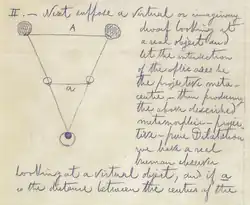 II. — Next suppose a virtual or imaginary
dwarf looking at
a real object and
let the intersection
of the optic axes be
the projective meta-
centre — then producing
the above described
metamorphic — projec-
tion — pure Dilatation
you have a real
human observer
looking at a virtual object, and if a
is the distance between the centres of the
A
a